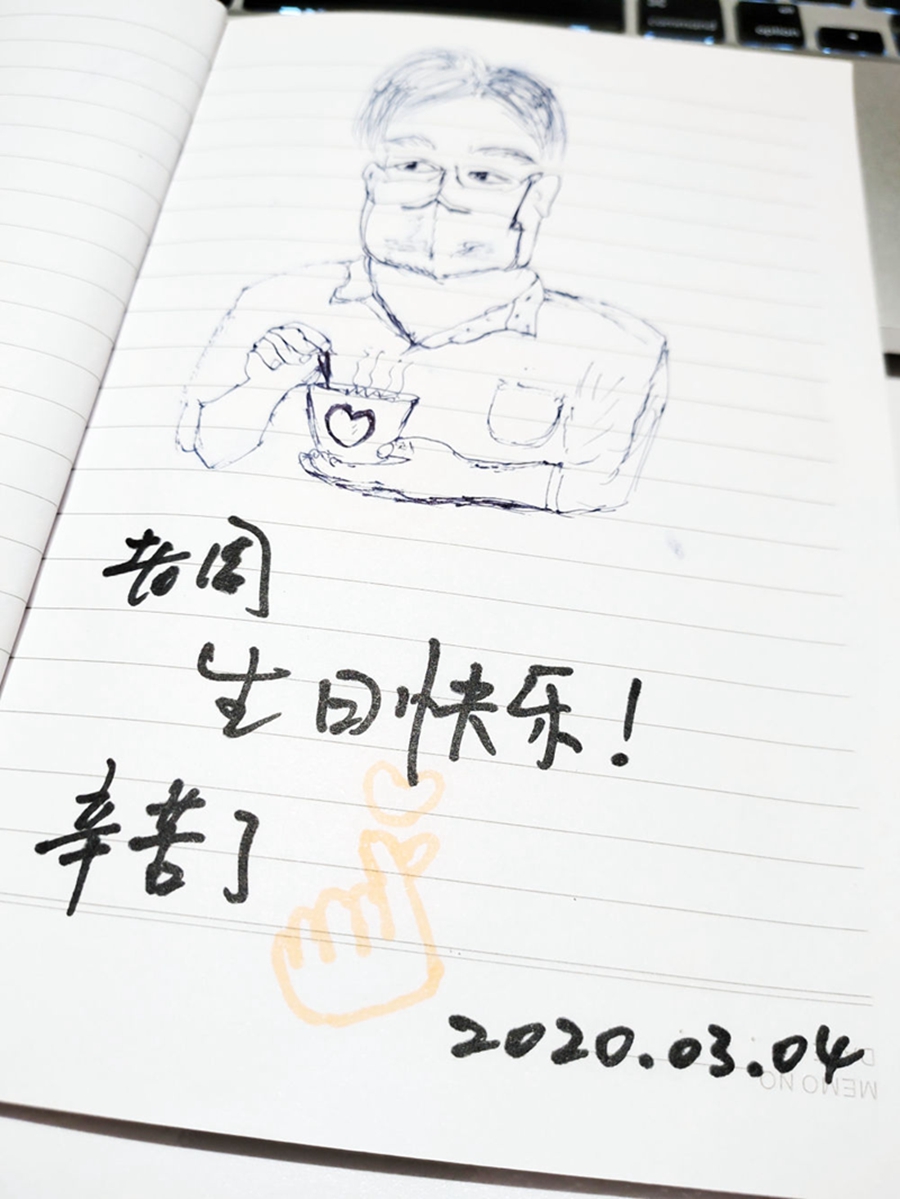 command
option
老周
生日快乐！
辛苦了
2020.03.04
MEMO NO